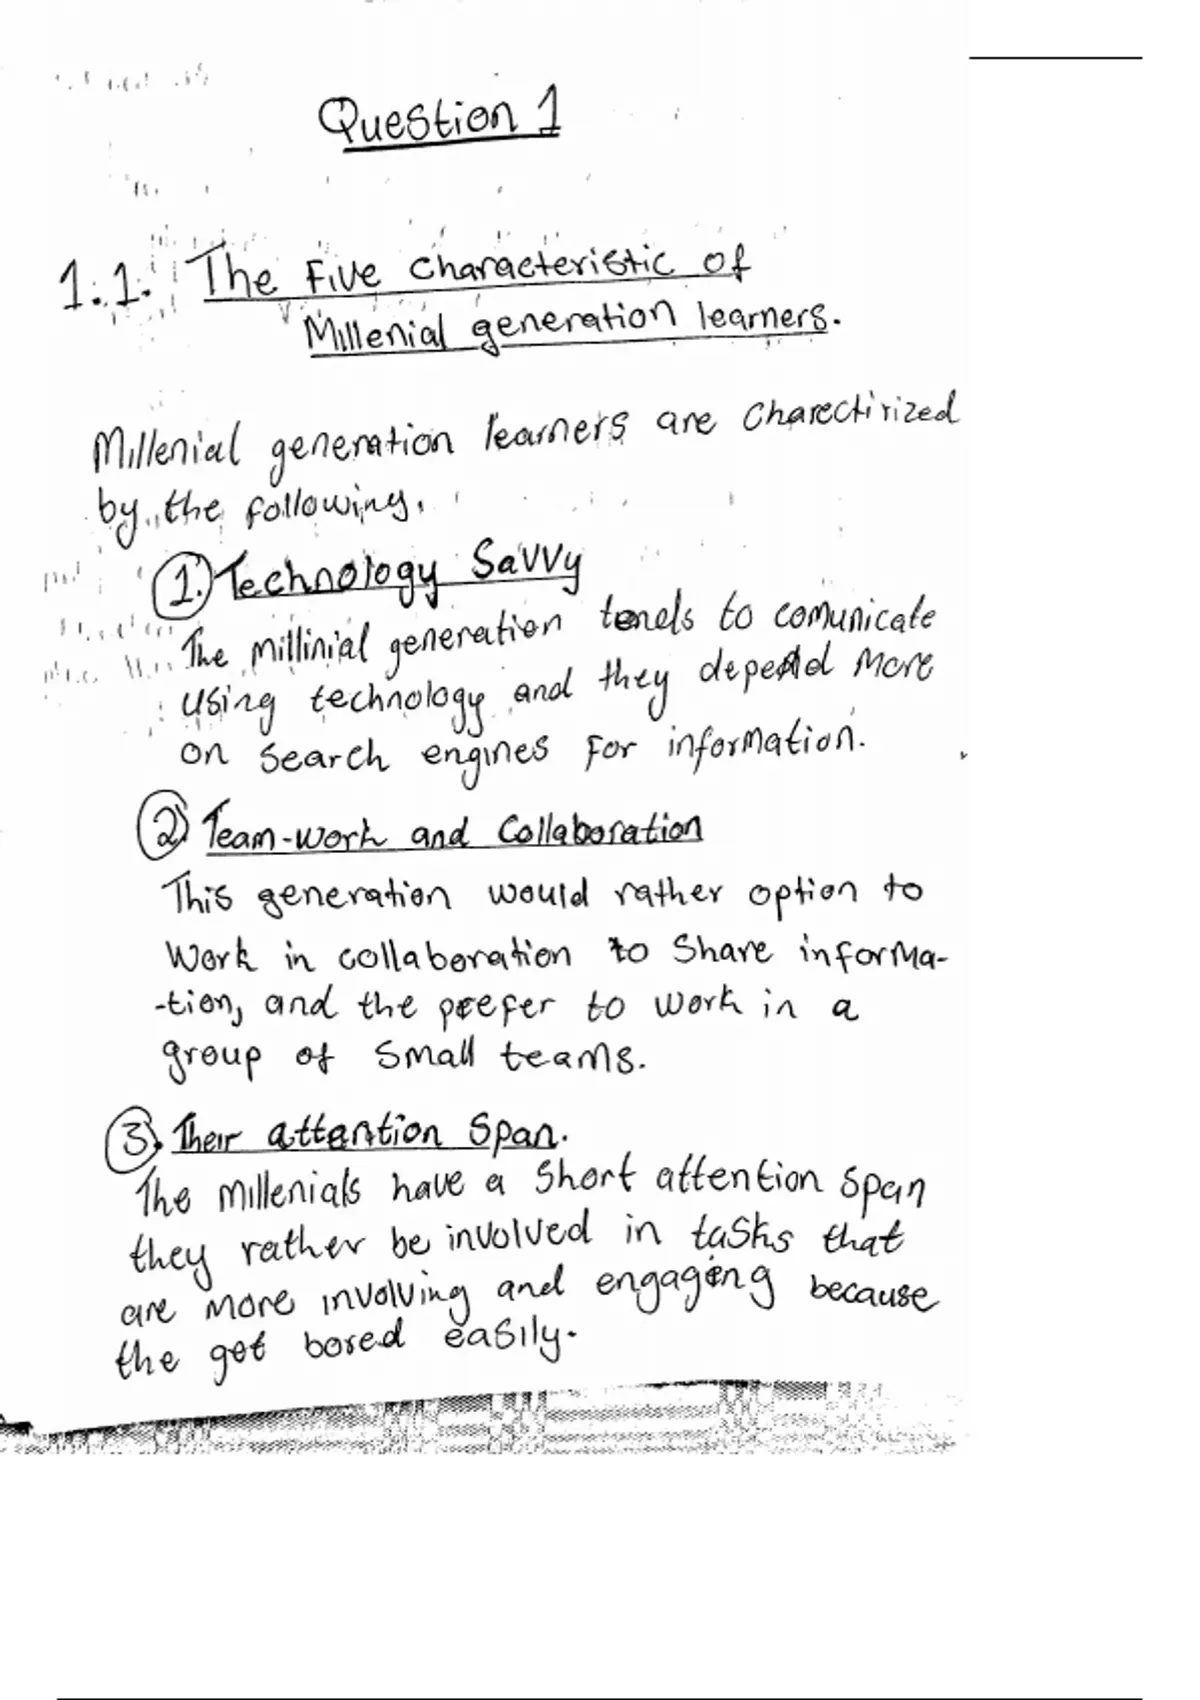 Question 1
1.1. The Five characteristic of
Millenial generation learners.
Millenial generation learners are charectirized
by the following.
1. Technology Savvy
The millinial generation tends to comunicate
using technology and they depend more
on search engines for information.
2. Team-work and Collaboration
This generation would rather option to
work in collaboration to share informa-
-tion, and the prefer to work in a
group of small teams.
3. Their attention span.
The millenials have a short attention span
they rather be involved in tasks that
are more involving and engaging because
the get bored easily.